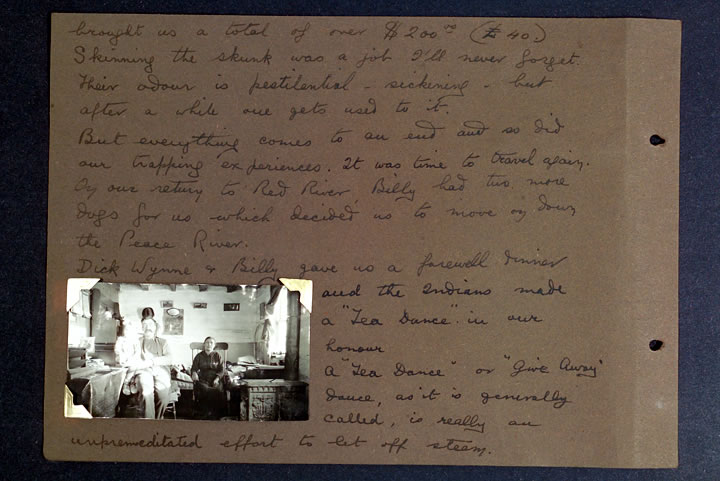 brought us a total of over $200.00 (£40)
Skinning the skunk was a job I'll never forget.
Their odour is pestilential - sickening - but
after a while one gets used to it.
But everything comes to an end and so did
our trapping experiences. It was time to travel again.
On our return to Red River, Billy had two more
dogs for us - which decided us to move on down
the Peace River.
Dick Wynne & Billy gave us a farewell dinner
and the Indians made
a "Tea Dance" in our
honour
A "Tea Dance" or "Give Away"
Dance, as it is generally
called, is really an
unpremeditated effort to let off steam.